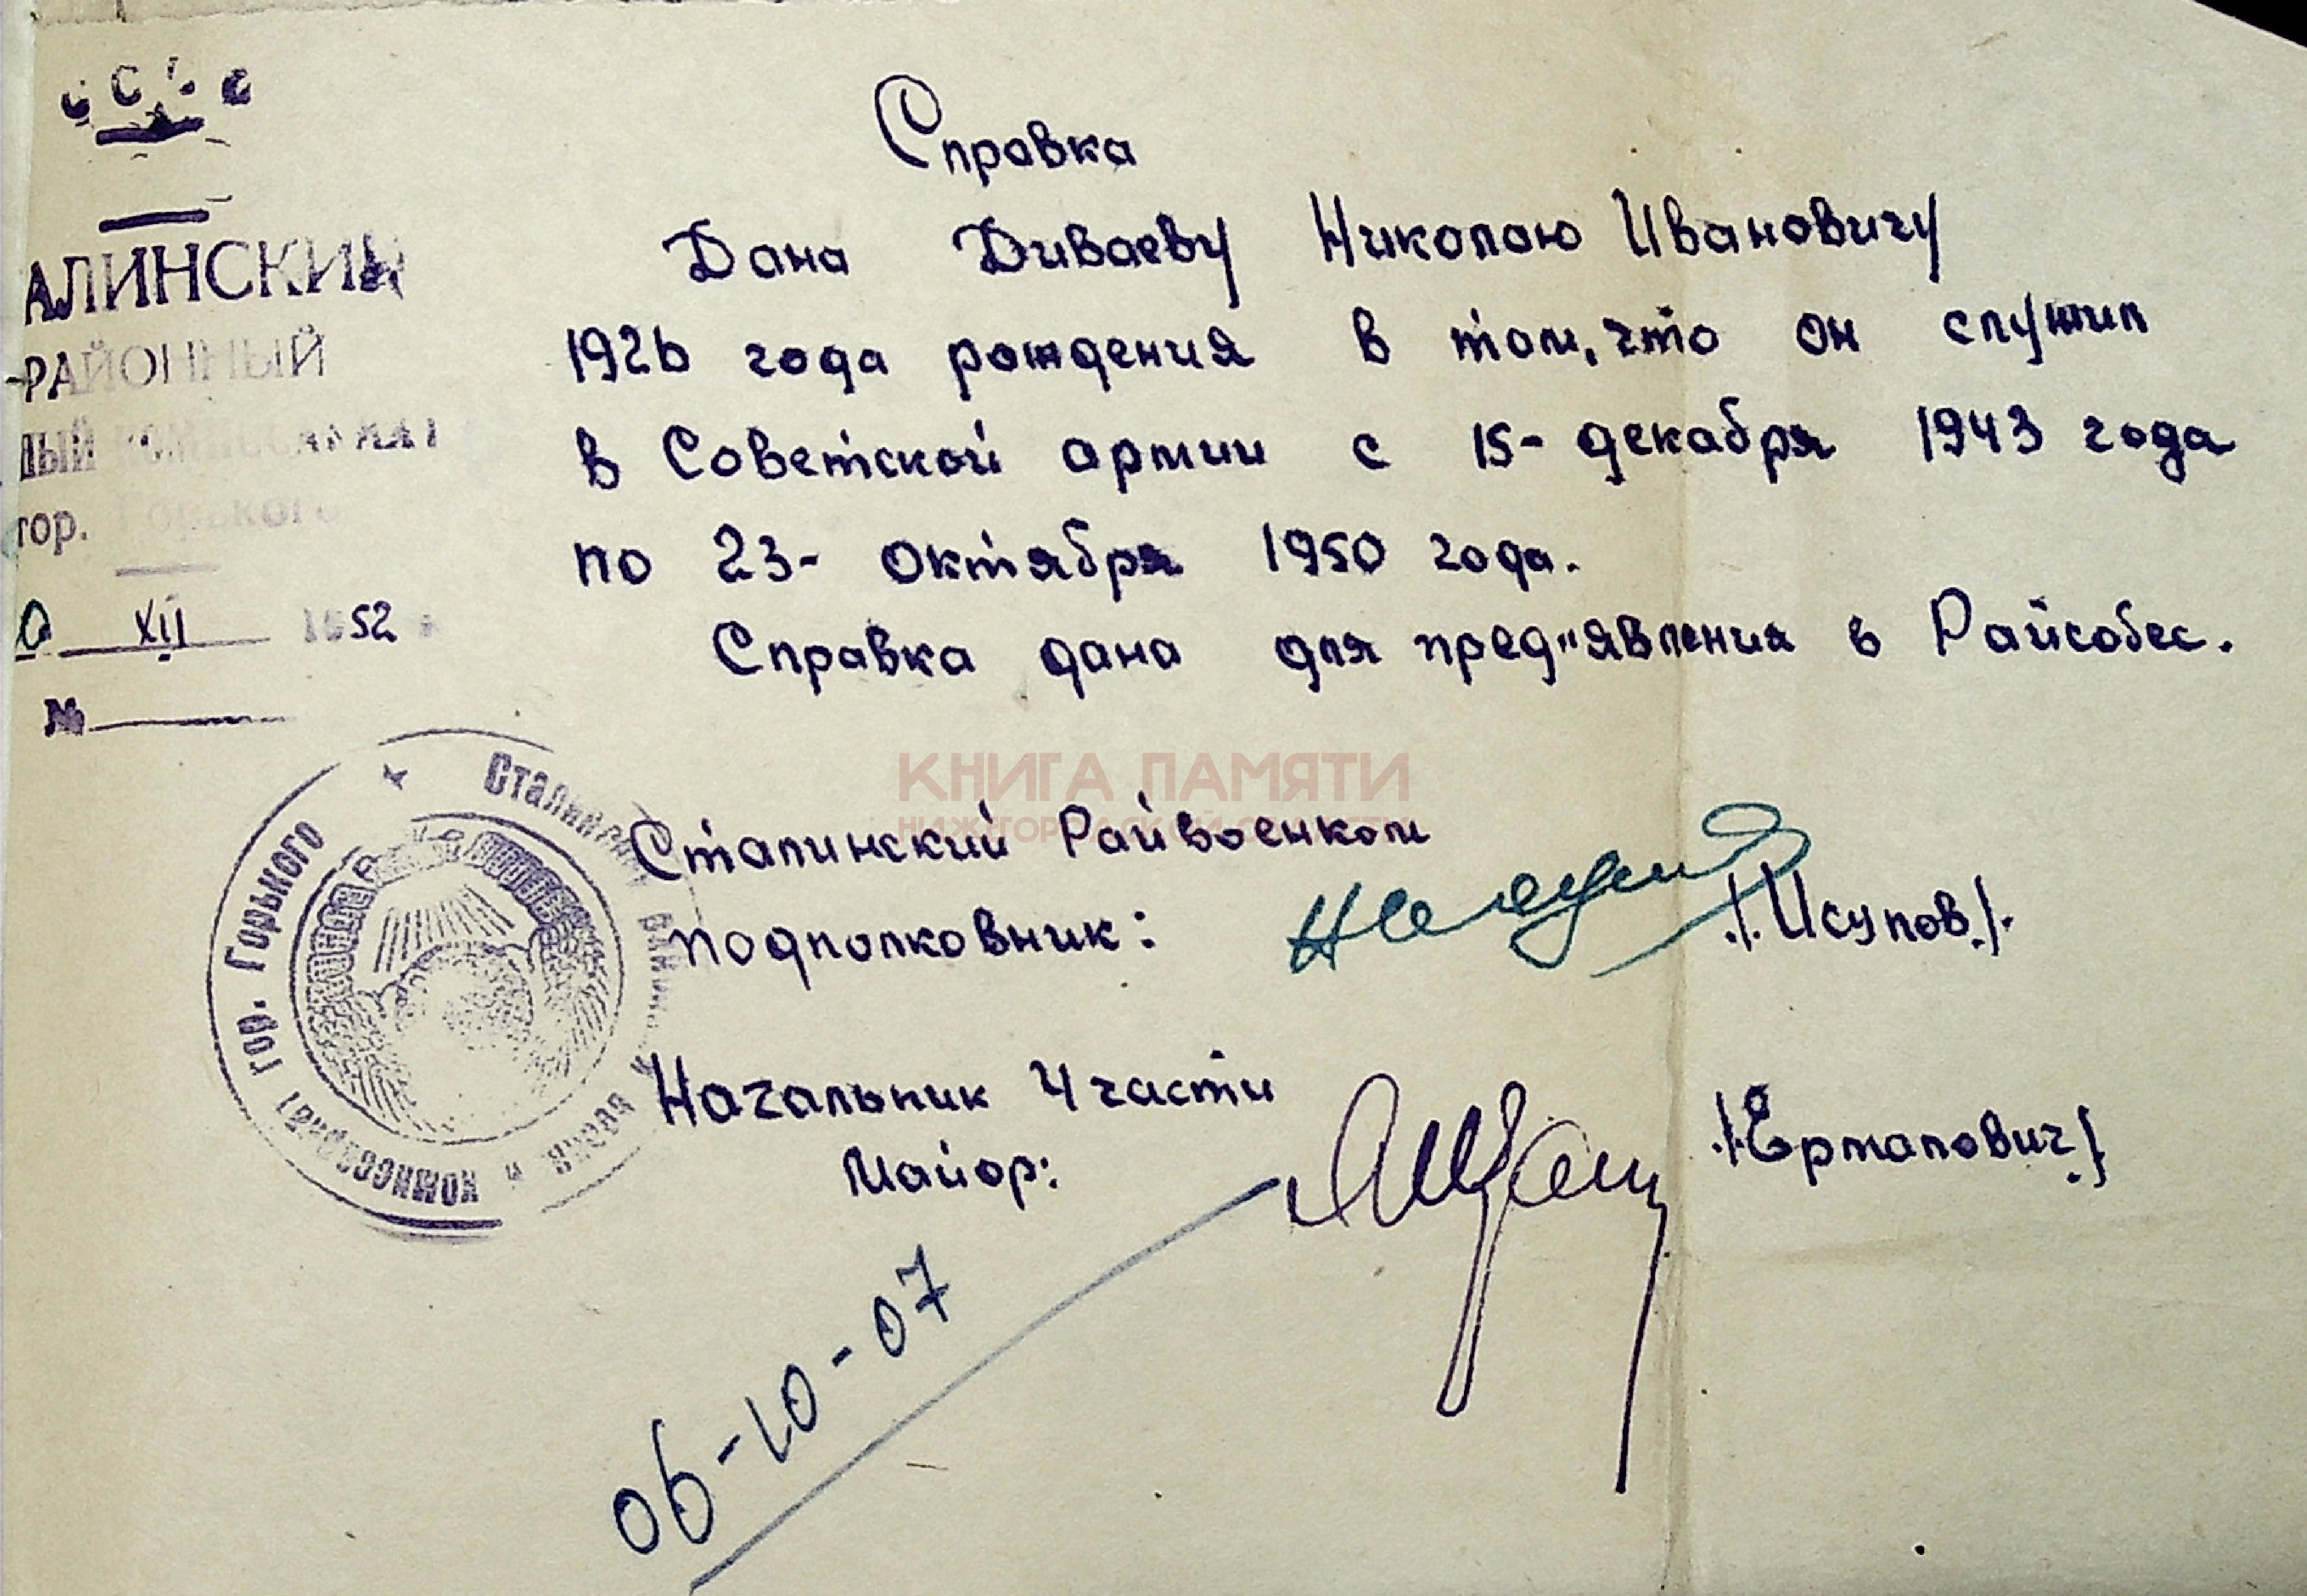 АЛИНСКИЙ
РАЙОННЫЙ
НЫЙ КОМИССАРИАТ
гор. Горького
XII 1952
№
Справка
Дана Диваеву Николаю Ивановичу
1926 года рождения в том, что он служил
в Советской армии с 15- декабря 1943 года
по 23- октября 1950 года.
Справка дана для пред"явления в Райсобес.
КНИГА ПАМЯТИ
НИЖЕГОРОДСКОЙ ОБЛАСТИ
Сталинский Райвоенком
подполковник: /.Исупов./.
Начальник 4 части
Майор: /.Ермалович./
06-10-07
Сталинский район
комиссариат гор. Горького